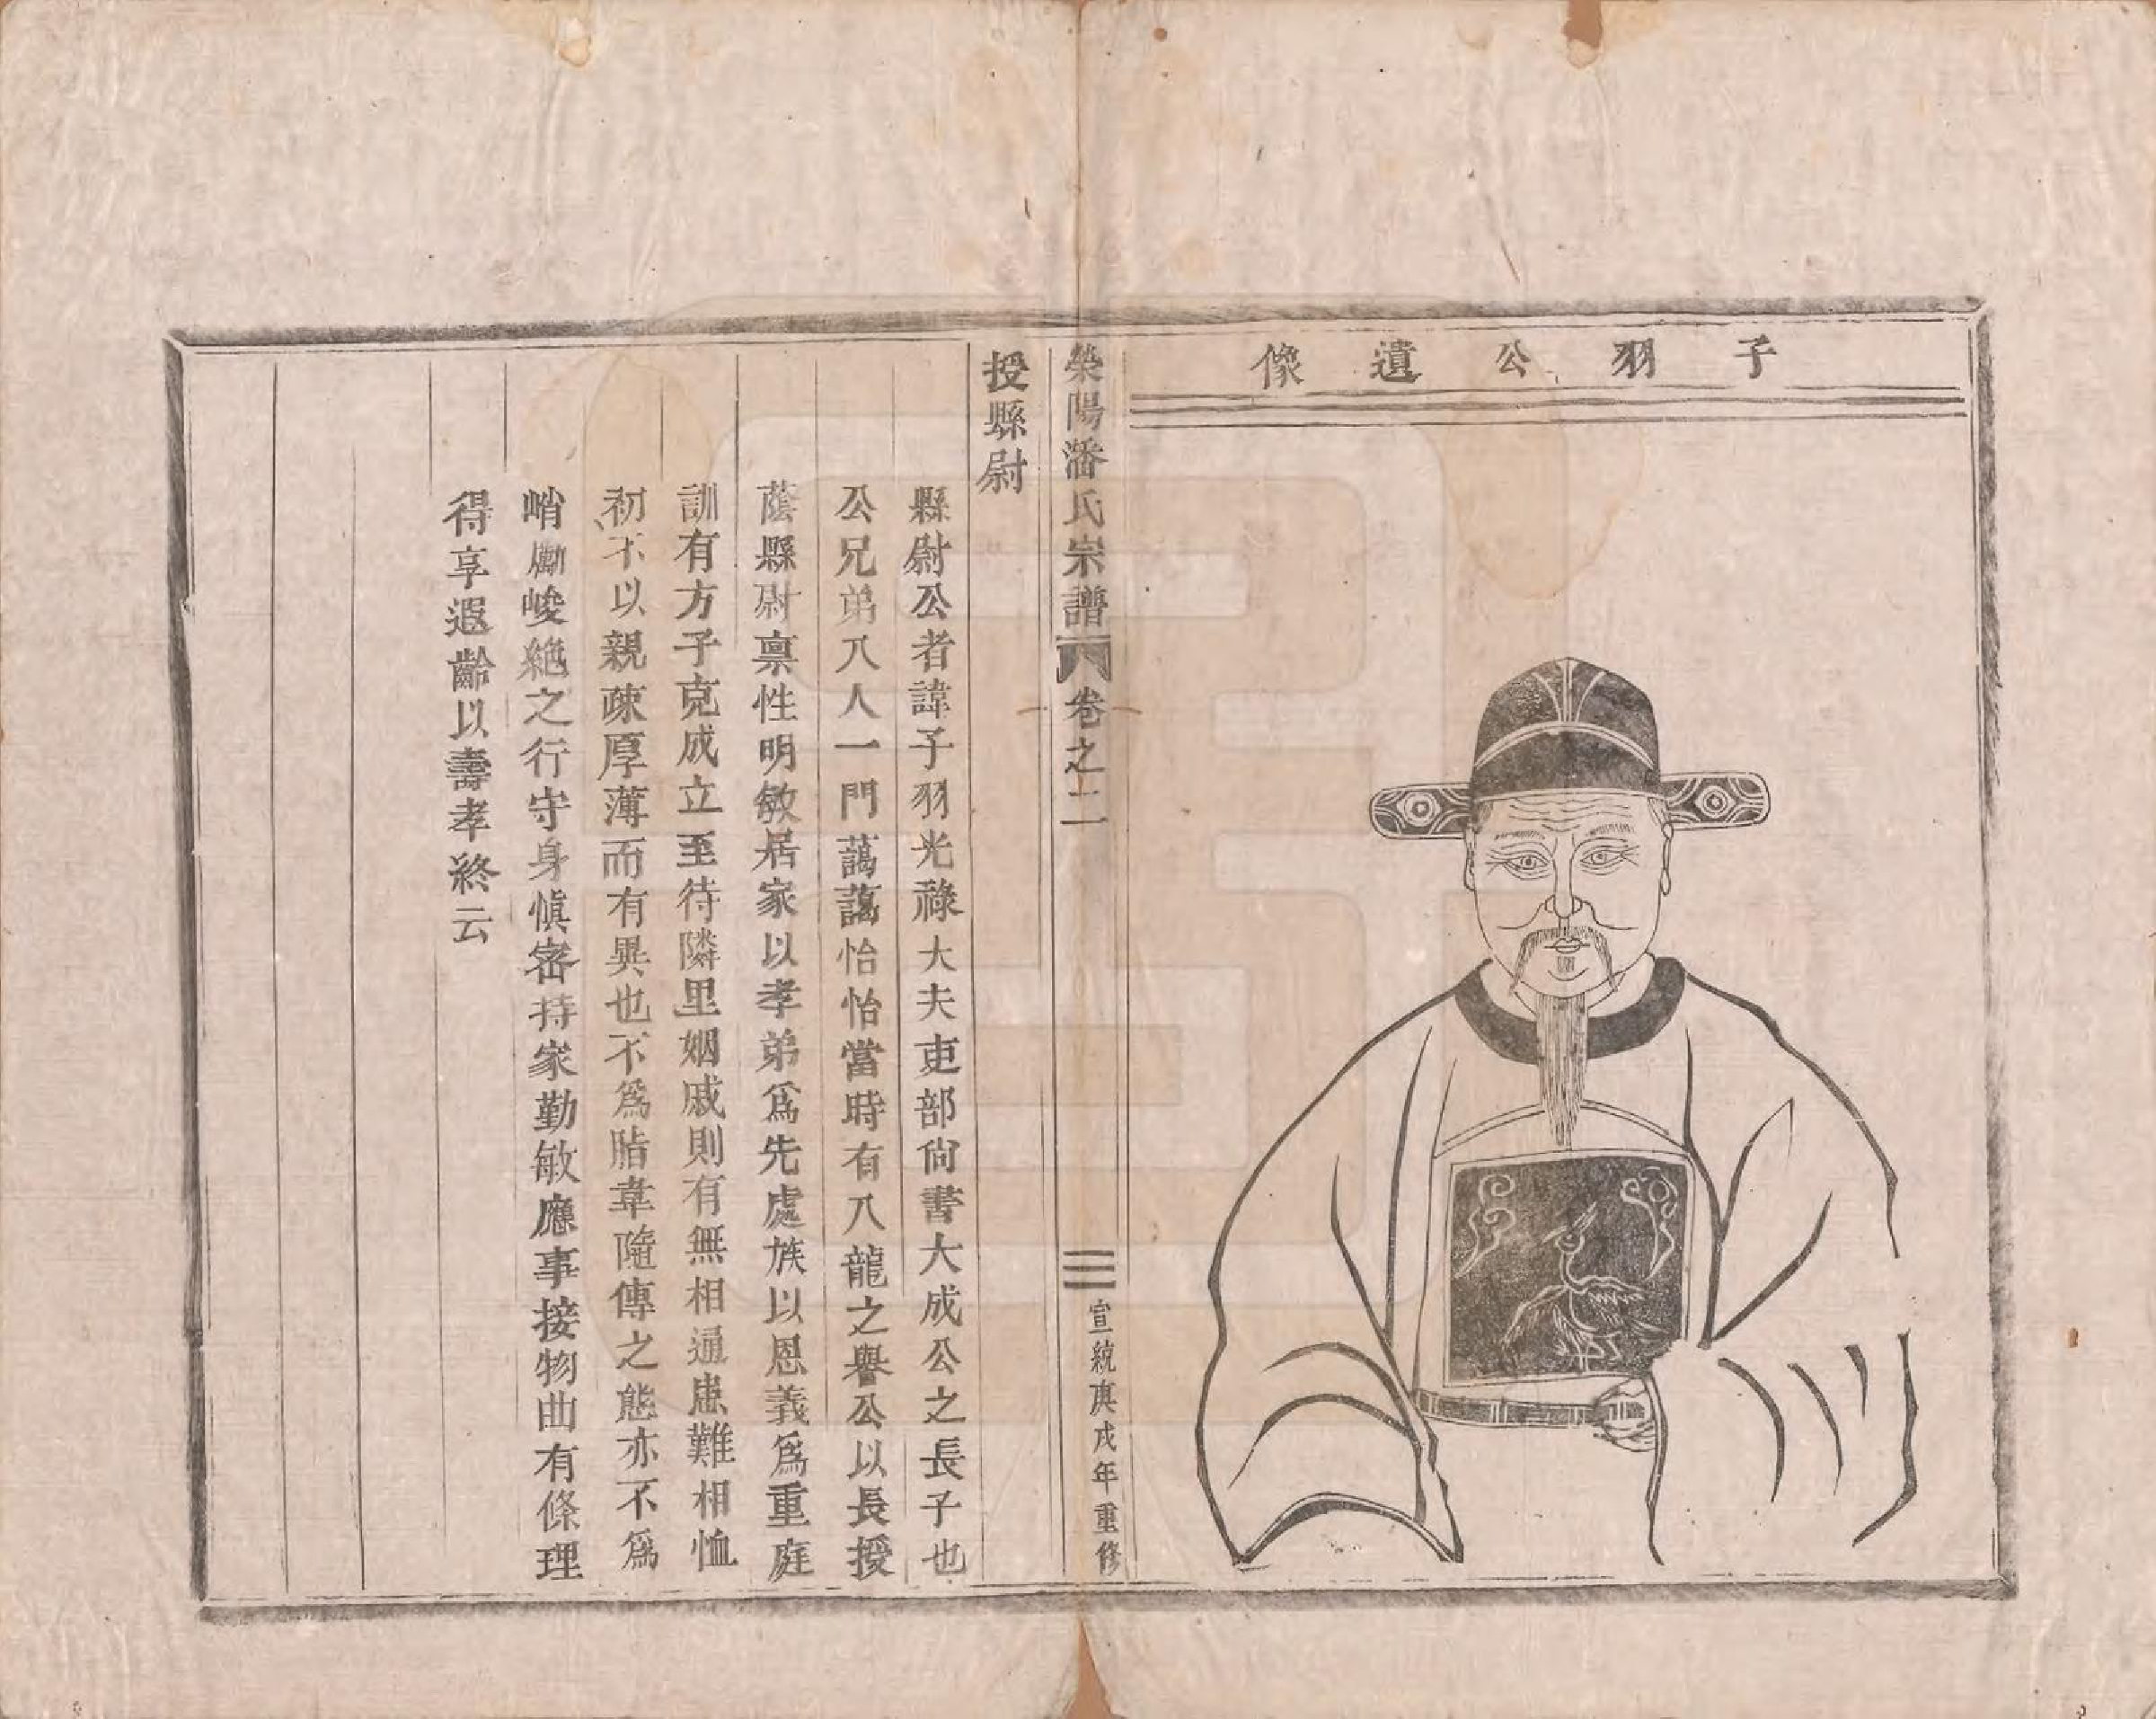 子羽公遺像
榮陽潘氏宗譜 卷之二 三 宣統庚戌年重修
授縣尉
縣尉公者諱子羽光祿大夫吏部尚書大成公之長子也
公兄弟八人一門藹藹怡怡當時有八龍之譽公以長授
蔭縣尉禀性明敏居家以孝弟爲先處族以恩義爲重庭
訓有方子克成立至待隣里姻戚則有無相通患難相恤
初不以親疎厚薄而有異也不爲脂韋隨傳之態亦不爲
峭勵峻絶之行守身慎密持家勤敏應事接物曲有條理
得享遐齡以壽孝終云